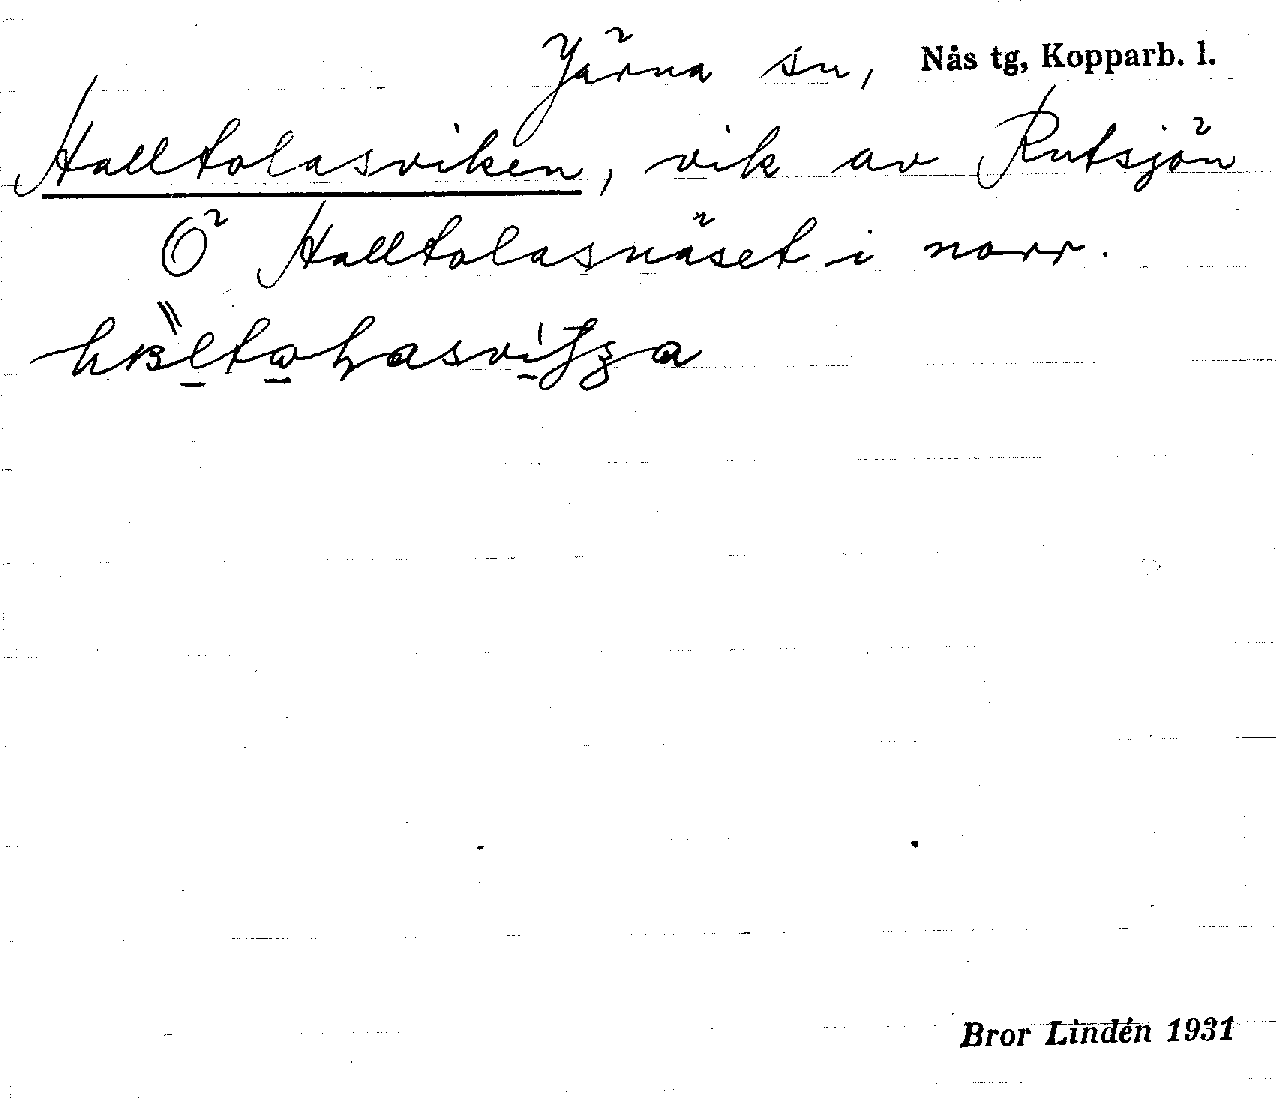 Järna sn, Nås tg, Kopparb. l.
Halltolasviken, vik av Rutsjön
Ö Halltolasnäset i norr.
Bror Lindén 1931